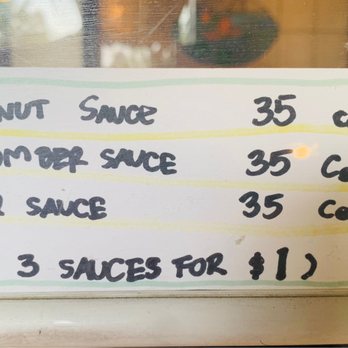 NUT SAUCE 35 C
OMBER SAUCE 35 Ce
R SAUCE 35 Ce
3 SAUCES FOR $1)